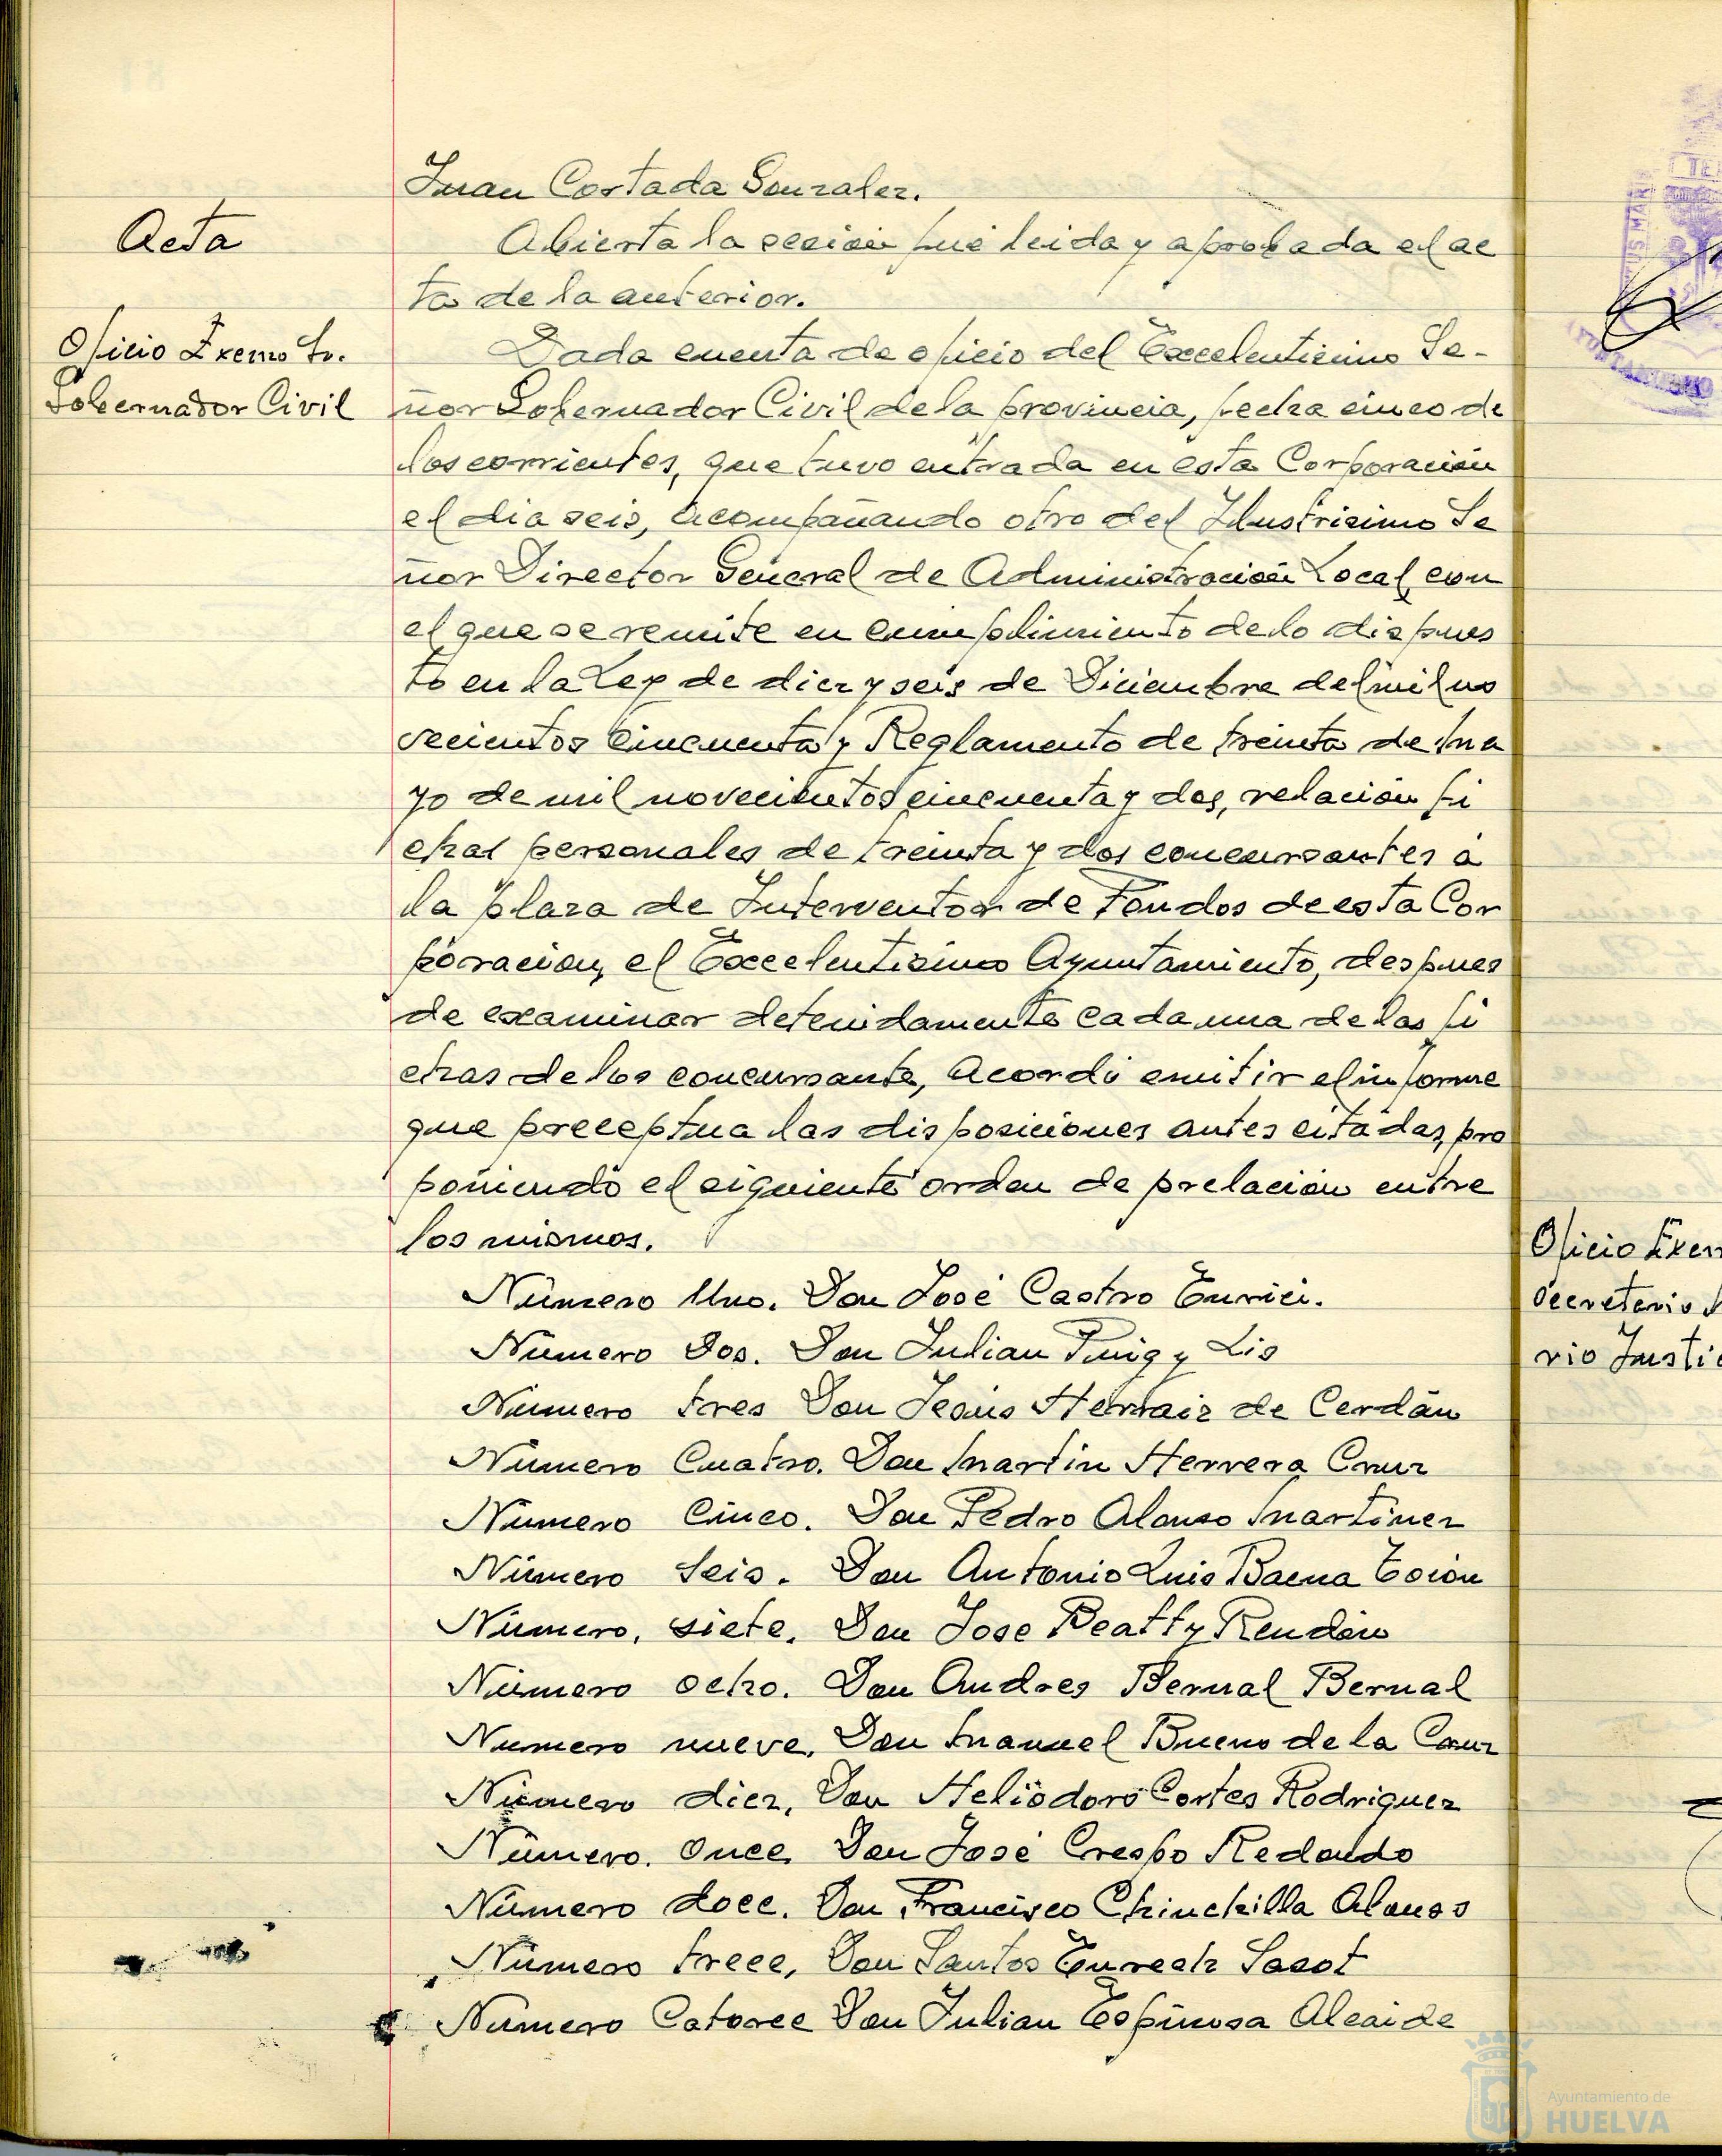 Juan Cortada Gonzalez.
Acta
Abierta la sesión fué leida y aprobada el ac
ta de la anterior.
Oficio Excmo Sr.
Gobernador Civil
Dada cuenta de oficio del Excelentisimo Se-
ñor Gobernador Civil de la provincia, fecha cinco de
los corrientes, que tuvo entrada en esta Corporación
el dia seis, acompañando otro del Ilustrisimo Se
ñor Director General de Administración Local, con
el que se remite en cumplimiento de lo dispues
to en la Ley de diez y seis de Diciembre del mil no
vecientos cincuenta y Reglamento de treinta de Ma
yo de mil novecientos cincuenta y dos, relación fi
chas personales de treinta y dos concursantes a
la plaza de Interventor de Fondos de esta Cor
poracion, el Excelentisimo Ayuntamiento, despues
de examinar detenidamente cada una de las fi
chas de los concursante, acordó emitir el informe
que preceptua las disposiciones antes citadas, pro
poniendo el siguiente orden de prelación entre
los mismos.
Número Uno. Don José Castro Eurici.
Número Dos. Don Julian Puig y Lis
Número tres Don Jesús Herraiz de Cerdán
Número Cuatro. Don Martin Herrera Cruz
Número Cinco. Don Pedro Alonso Martinez
Número Seis. Don Antonio Luis Baena
Número, siete. Don Jose Beatty Rendón
Número ocho. Don Andres Bernal Bernal
Numero nueve, Don Manuel Bueno de la Cruz
Número diez, Don Heliodoro Cortes Rodriguez
Número. Once. Don José Crespo Redondo
Número doce. Don Francisco Chinchilla Alonso
Número trece, Don Santos Eurech Sasot
Número Catorce Don Julian Espinosa Alcaide
Oficio
Secretario
rio Justi
Ayuntamiento de
HUELVA